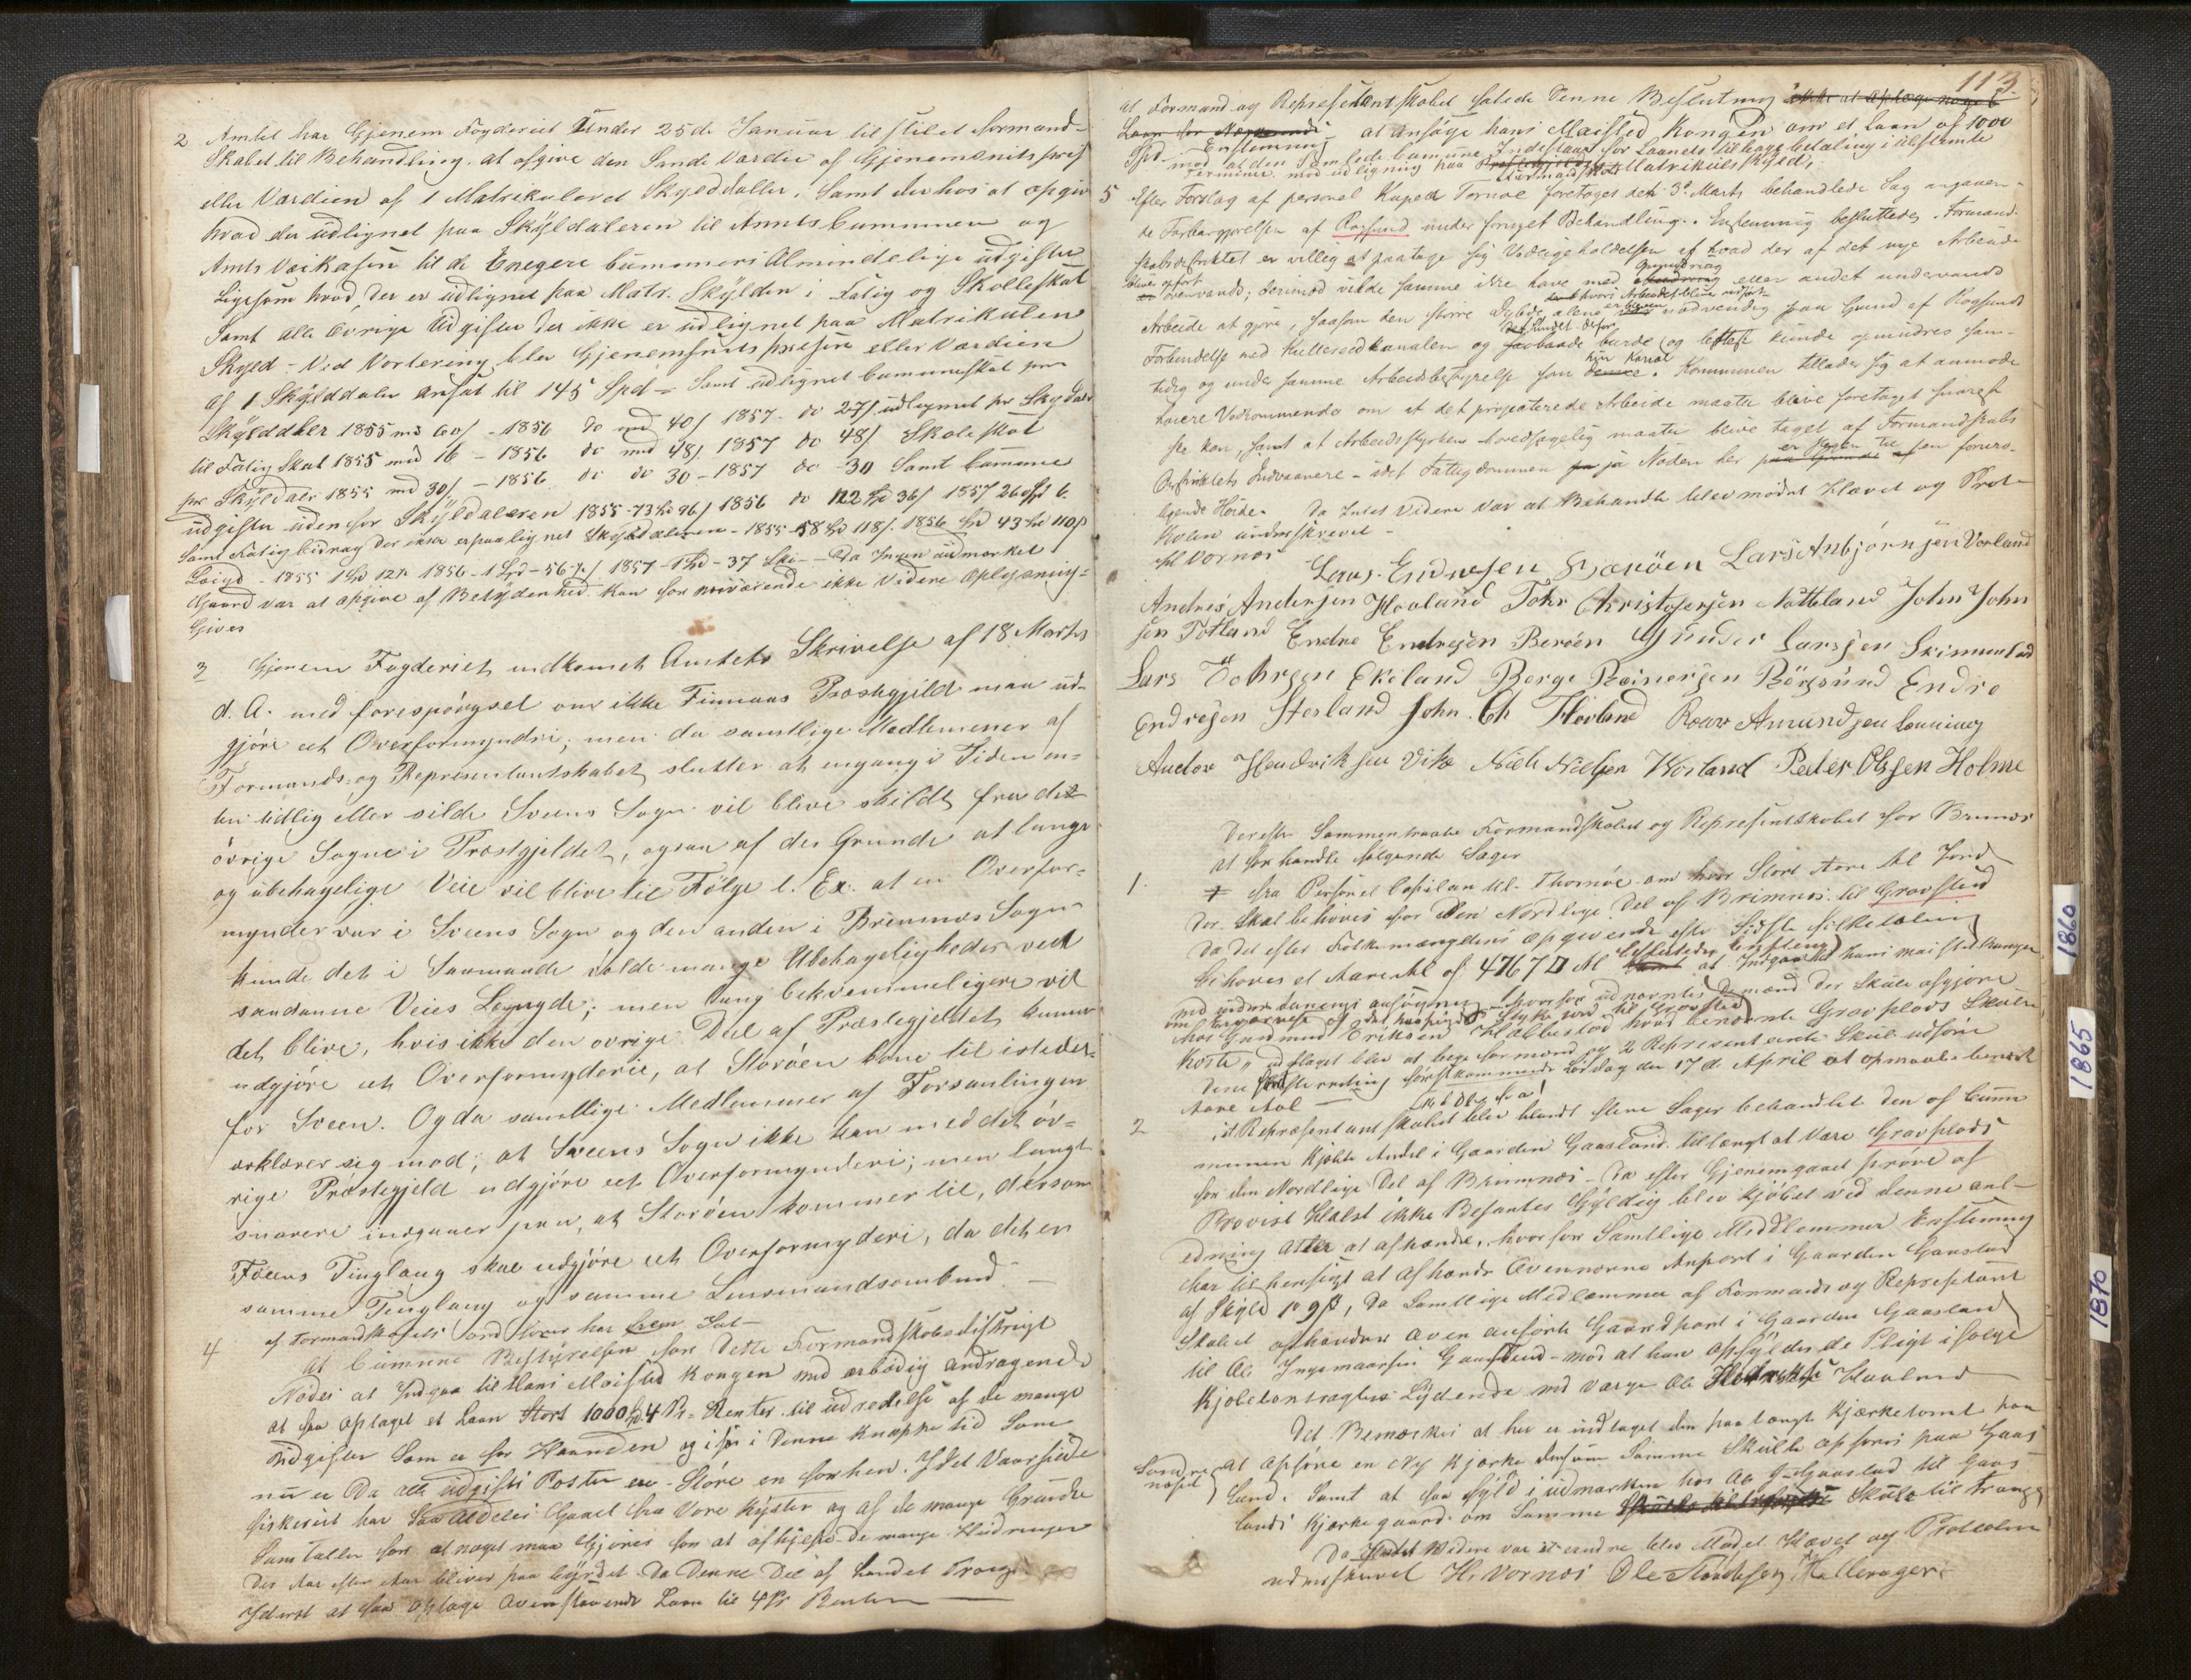 2 Amtet har Gjenem Fogderiet Under 25de Januar tilstilet formand-
Skabet til Behandling at afgive den Sande Værdie af Gjenemsnits pris
eller Værdien af 1 Matrikuleret Skylddaller, Samt derhos at opgive
hvad der udlignet paa Skÿldaleren til Amts Cummunen og
Amts Veikassen til de Enegere Cummuners Almindelige udgifter
Ligesom hvad der er udlignet paa Matr. Skÿlden i Fatig og Skolleskat
Samt alle Øvrige Udgifter der ikke er udlignet paa Matrikulen
Skyld - Ved Vortering blev Gjenemsnits prisen eller Værdien
af 1 Skÿlddaler ansat til 145 Spd = Samt udlignet Cummuneskat pr
Skÿlddaler 1855 md 60/ - 1856 do md 40/ 1857 do 27/ udlignet pr Skydaler
til Fatig Skat 1855 md 16 - 1856 do md 48/ 1857 do 48/ Skoleskat
pr Skyldaler 1855 md 30/ - 1856 do do 30 - 1857 do - 30 Samt Cummune
udgifter uden for Skÿldaleren 1855 - 73 96/ 1856 do 122 36/ 1857 260
Samt Fatigbidrag der ikke er paalignet Skÿldaleren - 1855 - 58 118/. 1856 43 110/
1855 1 12 1856 - 1 Spd - 56 / 1857 - 37 - Da Ingen udmarket
Gaard var at opgive af Betydenhed kan for nærværende ikke Videre Oplysning-
Gives
3 Gjenem Fogderiet indkomet Amtets Skrivelse af 18 Marts
d. A. med forespørgsel om ikke Finnaas Præstegjeld maa ud-
gjøre et Overformynderi; men da samtlige Medlemmer af
Formands- og Representantskabet slutter at engang i Tiden en-
ten tidlig eller silde Sveens Sogn vil blive skildt fra det
øvrige Sogne i Præstgjeldet, ogsaa af den Grunde at lange
og ubehagelige Veie vil blive til Følge t. Ex. at en Overfor-
mynder var i Sveens Sogn og den anden i Bremnes Sogn
kunde det i Saamaade volde mange Ubehageligheder ved
saadanne Veies Lengde; men lang bekvemmeligere vil
det blive, hvis ikke den øvrige Deel af Præstegjeldet kunne
udgjøre et Overformynderie, at Storøen kom til isteden
for Sveen. Og da samtlige Medlemmer af Forsamlingen
erklærer sig mod; at Sveens Sogn ikke kan med det øv-
rige Præstegjeld udgjøre et Overformynderi; men langt
snarere indgaaer paa, at Storøen kommer til, dersom
Føiens Tinglaug skal udgjøre et Overformynderi, da det er
samme Tinglaug og samme Lensmandsombud. —
4 af Formandskabets Ordfører har frem Sat —
at Cumune Bestÿrelsen for Dette Formandskabsdistrigt
Nødes at Indgaa til Hans Maiested Kongen med ærbødig andragende
at faa optaget et Laan Stort 1000 Spd 4 Pr= Renter til udredelse af de mange
Udgifter Som er for Haanden og især i Denne knappe tid Som
nu er Da alle udgifts Poster er Støre en forhen. Idet Vaarsilde
fiskeriet har Saa Aldeles Gaaet fra Vore Kÿster og af de mange Grunde
Sam taller for at noget maa Gjøres for at afhjelpe de mange Udredninger
Der Aar efter Aar bliver paa Bÿrdet Da Denne Del af Landet Trænger
Iderst at faa Optage Ovenstaaende Laan til 4 Pr Renter —
113
at Formand og Represetantskabet fatede Denne Beslutning ikke at Optage noget
Laan for Nærværende at ansøge hans Maiested Kongen om et Laan af 1000
Spd - Enstemmig
med at den Samlede Cumune Indestaar for Laanets tilbage betaling i bestemte
Terminer med udligning paa Præstegjeldets Matrikuls Skyld,
Formandskab
5 Efter Forslag af personel Kapela Tornøe foretages den 3de Marts behandlede Sag angaaen-
de Farbargjørelsen af Røgsund under fornyet Behandling. Enstemmig besluttedes: Formand-
skabsdistriktet er villig at paatage sig Vedligeholdelsen af hvad der af det nye Arbeide
bliver opført
er ovenvands; derimod vilde samme ikke have med Opmudring eller andet undervands
Arbeide at gjøre, saasom den større Dybde alene er bleven nødvendig paa Grund af Røgsunds
Forbindelse med Kulleseidkanalen og Sundet derfor burde og lettest kunde opmudres sam-
tidig og under samme Arbeidsbestyrelse som hin Kanal. Kommunen tillader sig at anmode
høiere Vedkommende om at det projecterede Arbeide maatte blive foretaget snarest
ske kan, samt at Arbeidsstyrken hovedsagelig maatte blive taget af Formandskabs
Distriktets Indvaanere - idet Fattigdommen ja Nøden her er stegen til en foruro-
ligende Høide. Da Intet Videre Var at Behandle blev mødet Hævet og Prot-
kolen underskrevet -
H Vornæs
Lars. Endresen Siggerøen Lars Anbjørnsen Vorland
Andres Andersen Hovland Tohr Christofersen Nøtteland John John
sen Totland Endre Endresen Berøen Gunder Larsen Skimmeland
Lars Tohrsen Ekeland Berge Reinersen Røgsund Endre
Endresen Stesland John. Ch Hovland Roar Amundsen Lønning
Auctor Hendriksen Vik Niels Nielsen Vorland Peder Olssen Holme
Derefter Sammentraate Formandskabet og Represetskabet for Bremnes
at forhandle følgende Sager
1. fra Personel Capelan Hl. Thornøe om hvor Stort Aare Al Jord
Der Skal behøves for Den Nordlige Del af Brimnes til Gravsted
Da det efter Folkemængdens opgivende efter Sidste folketæling
Behoves et Aare Al of 4767 □ Al besluttedes enstemg at Indgaa til hans maiested kongen
med underdanigs ansøgning - hvorfor udnævntes Mænd der Skule afgjøre
om
hos Gudmund Eriksen Hallestad hvad benævnte Gravplads Skulde
Koste, udtaget blev at bege formænd og 2 Representante Skul udføre
Dene forretning førstkommende Lørdag den 17 de April at opmaale benævnt
Aare Aal —
2 ist Representantskabet blev blandt flere Sager behandlet Den af Cum
munen Kjøbte Andel i Gaarden Gaasland tillængt at Være Gravplads
for den Nordlige Del af Brimnes - Da efter Gjenemgaaet prøve af
Provist Halst ikke Befantes Gÿldig blev Kjøbet ved denne anl-
edning atter at afhænde, hvorfor Samtlige Meddlemmer Enstemig
har til hensigt at afhænde Ovennævne Anpart i Gaarden Gaasland
af Skÿld 1 9 ß, Da Samtlige Medlemmer af Formands og Represetant
Skabet afhænder oven anførte Gaardpart i Gaarden Gaasland
til Ole Ingemaarsen Gaasland - mod at han opfÿlder de Pligt i følge
Kjøbekontragtes Lydende ved Værge Ole Haaland
Det Bemærkes at her er indtaget den paatængte Kjærketomt paa
Søndre
næset
at Opføre en Ny Kjærke dersom Samme Skulde opføres paa Gaas
Lund. Samt at faa fyld i udmarken hos Ole Gaasland til Gaas
lunds Kjærkegaard om Samme Skule til trænges
Da Indet Videre var at ændre blev Mødet Hævet og Protcolen
underskrevet H. Vornæs Ole Hallerager
1860
1865
1870